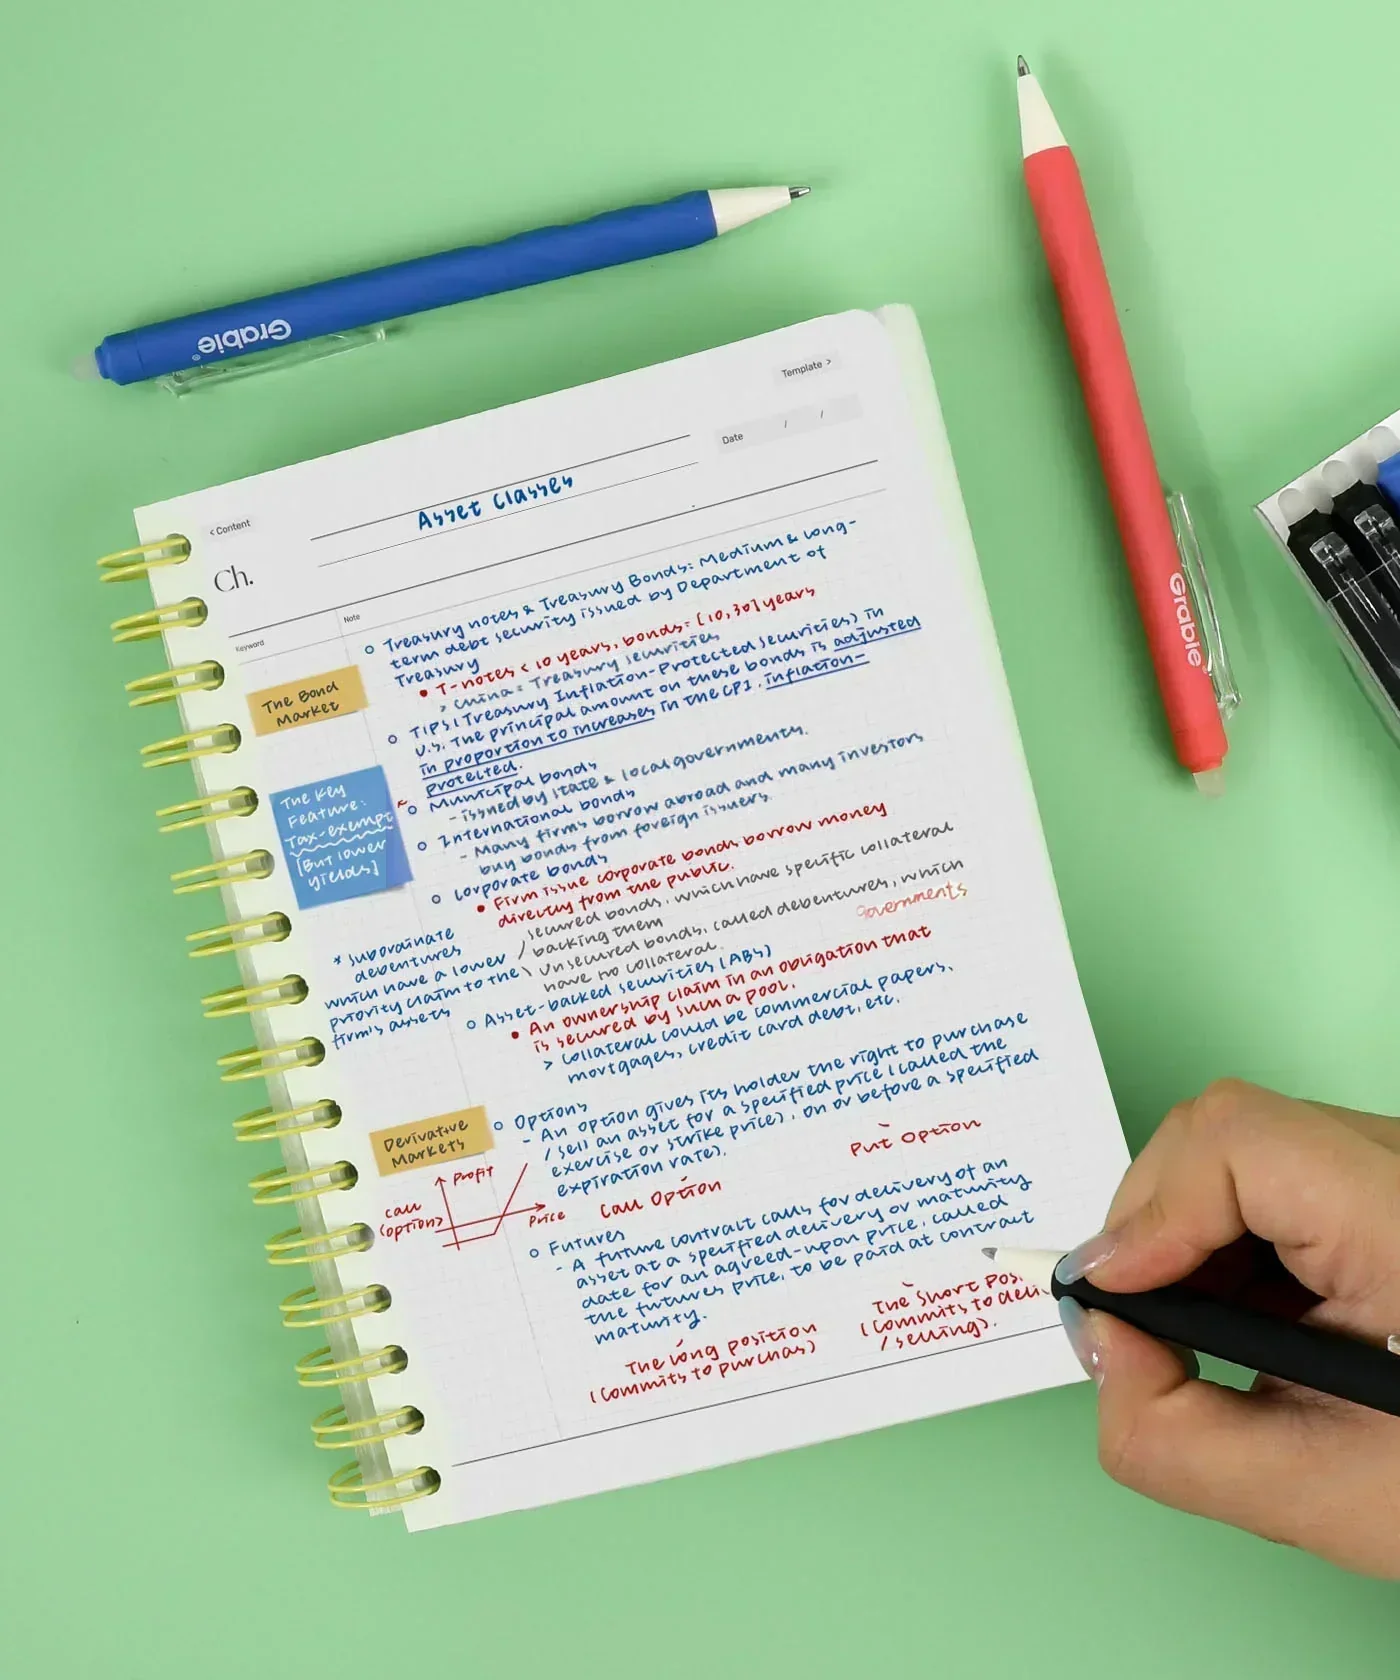 Grabie
Grabie
Template >
Date / /
< Content
Asset Classes
Ch.
Keyword
Note
The Bond
Market
Treasury notes & Treasury Bonds: Medium & long-
term debt security issued by Department of
Treasury
T-notes < 10 years, bonds = [10,30] years
> China = Treasury securities
TIPS (Treasury Inflation-Protected Securities) in
U.S. The principal amount on these bonds is adjusted
in proportion to increases in the CPI. inflation-
protected.
The Key
Feature:
Tax-exempt
[But lower
yields]
Municipal bonds
- issued by state & local governments.
International bonds
- Many firms borrow abroad and many investors
buy bonds from foreign issuers.
Corporate bonds
Firm issue corporate bonds borrow money
directly from the public.
secured bonds, which have specific collateral
backing them
Unsecured bonds, called debentures, which
have no collateral.
governments
* subordinate
debentures
which have a lower
priority claim to the
firm's assets
Asset-backed securities (ABS)
An ownership claim in an obligation that
is secured by such a pool.
> collateral could be commercial papers,
mortgages, credit card debt, etc.
Derivative
Markets
Options
- An option gives its holder the right to purchase
/ sell an asset for a specified price (called the
exercise or strike price), on or before a specified
expiration rate).
Put Option
Call Option
Profit
call
(option)
Price
Futures
- A future contract calls for delivery of an
asset at a specified delivery or maturity
date for an agreed-upon price, called
the futures price, to be paid at contract
maturity.
The long position
(commits to purchas)
The short pos
(commits to deli
/ selling).